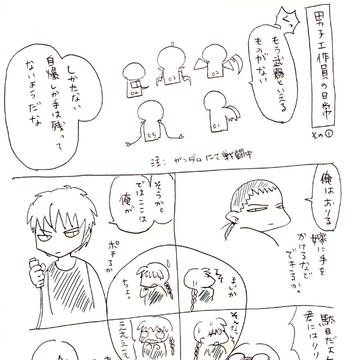 男子工作員の日常
その①
くっ
もう武器といえる
ものがない
しかたない
自爆しか手は残って
ないようだな
03
02
04
05
01
注:ガンダムにて戦闘中
俺はおりる
嫁に手を
かけるなど
できるか。
そうか。
ではここは
俺が
ポチるか
まいか
ちょ。
そんな。
ええぇって
駄目だ
君には